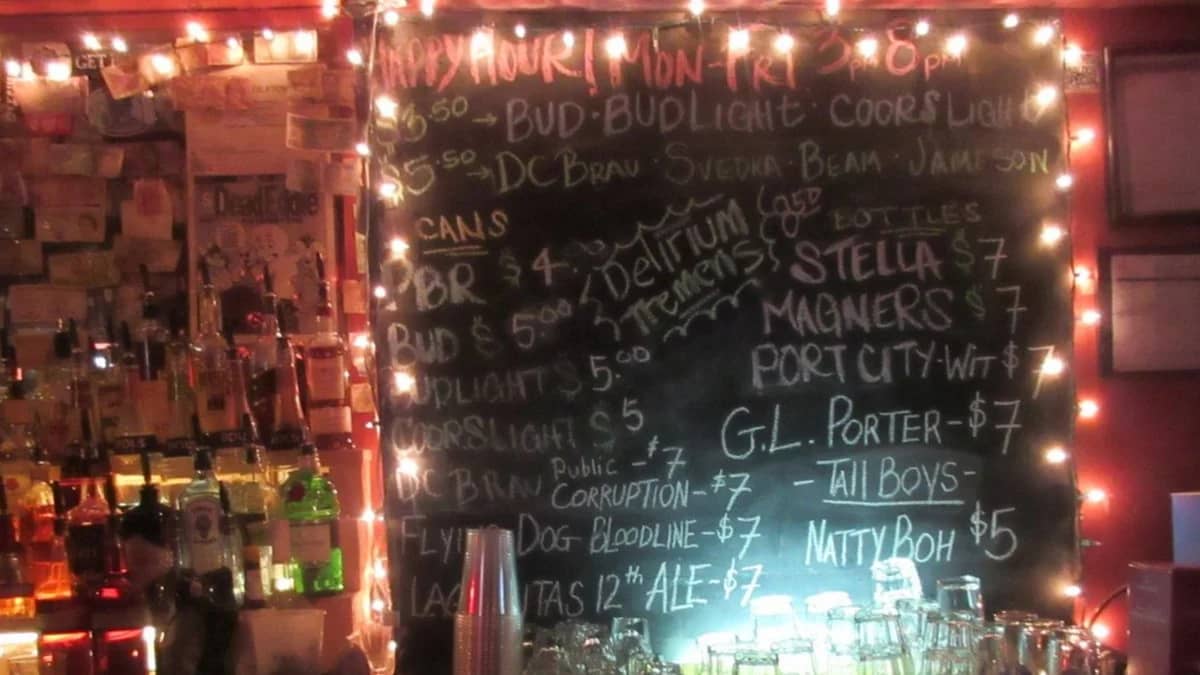 HAPPY HOUR! MON-FRI 3pm 8pm
$3.50 → BUD · BUDLIGHT · COORS LIGHT
$5.50 → DC BRAU · SVEDKA · BEAM · JAMESON
CANS
PBR $4.
BUD $5.00
BUDLIGHT $5.00
COORSLIGHT $5
DC BRAU Public CORRUPTION-$7
FLYING DOG BLOODLINE-$7
LAGUNITAS 12th ALE-$7
Delirium
Tremens
BOTTLES
STELLA $7
MAGNERS $7
PORT CITY-WIT $7
G.L. PORTER-$7
-Tall BOYS-
NATTY BOH $5
GET
Dead Edge